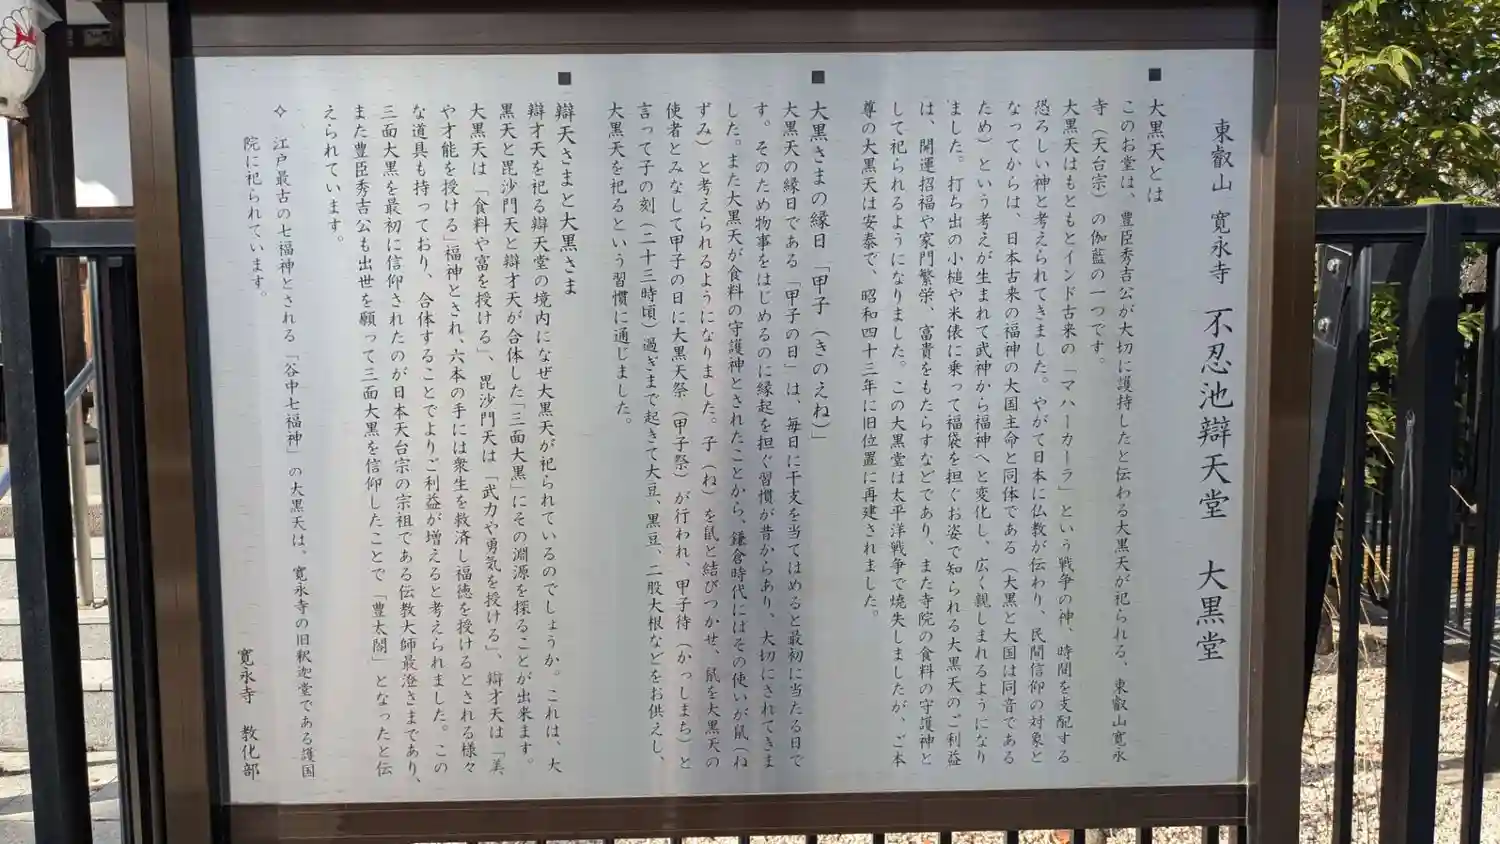 東叡山 寛永寺 不忍池辯天堂 大黒堂
■ 大黒天とは
このお堂は、豊臣秀吉公が大切に護持したと伝わる大黒天が祀られる、東叡山寛永
寺（天台宗）の伽藍の一つです。
大黒天はもともとインド古来の「マハーカーラ」という戦争の神、時間を支配する
恐ろしい神と考えられてきました。やがて日本に仏教が伝わり、民間信仰の対象と
なってからは、日本古来の福神の大国主命と同体である（大黒と大国は同音である
ため）という考えが生まれて武神から福神へと変化し、広く親しまれるようになり
ました。打ち出の小槌や米俵に乗って福袋を担ぐお姿で知られる大黒天のご利益
は、開運招福や家門繁栄、富貴をもたらすなどであり、また寺院の食料の守護神と
して祀られるようになりました。この大黒堂は太平洋戦争で焼失しましたが、ご本
尊の大黒天は安泰で、昭和四十三年に旧位置に再建されました。
■ 大黒さまの縁日「甲子（きのえね）」
大黒天の縁日である「甲子の日」は、毎日に干支を当てはめると最初に当たる日で
す。そのため物事をはじめるのに縁起を担ぐ習慣が昔からあり、大切にされてきま
した。また大黒天が食料の守護神とされたことから、鎌倉時代にはその使いが鼠（ね
ずみ）と考えられるようになりました。子（ね）を鼠と結びつかせ、鼠を大黒天の
使者とみなして甲子の日に大黒天祭（甲子祭）が行われ、甲子待（かっしまち）と
言って子の刻（二十三時頃）過ぎまで起きて大豆、黒豆、二股大根などをお供えし、
大黒天を祀るという習慣に通じました。
■ 辯天さまと大黒さま
辯才天を祀る辯天堂の境内になぜ大黒天が祀られているのでしょうか。これは、大
黒天と毘沙門天と辯才天が合体した「三面大黒」にその淵源を探ることが出来ます。
大黒天は「食料や富を授ける」、毘沙門天は「武力や勇気を授ける」、辯才天は「美
や才能を授ける」福神とされ、六本の手には衆生を救済し福徳を授けるとされる様々
な道具も持っており、合体することでよりご利益が増えると考えられました。この
三面大黒を最初に信仰されたのが日本天台宗の宗祖である伝教大師最澄さまであり、
また豊臣秀吉公も出世を願って三面大黒を信仰したことで「豊太閤」となったと伝
えられています。
✧ 江戸最古の七福神とされる「谷中七福神」の大黒天は、寛永寺の旧釈迦堂である護国
院に祀られています。
寛永寺 教化部